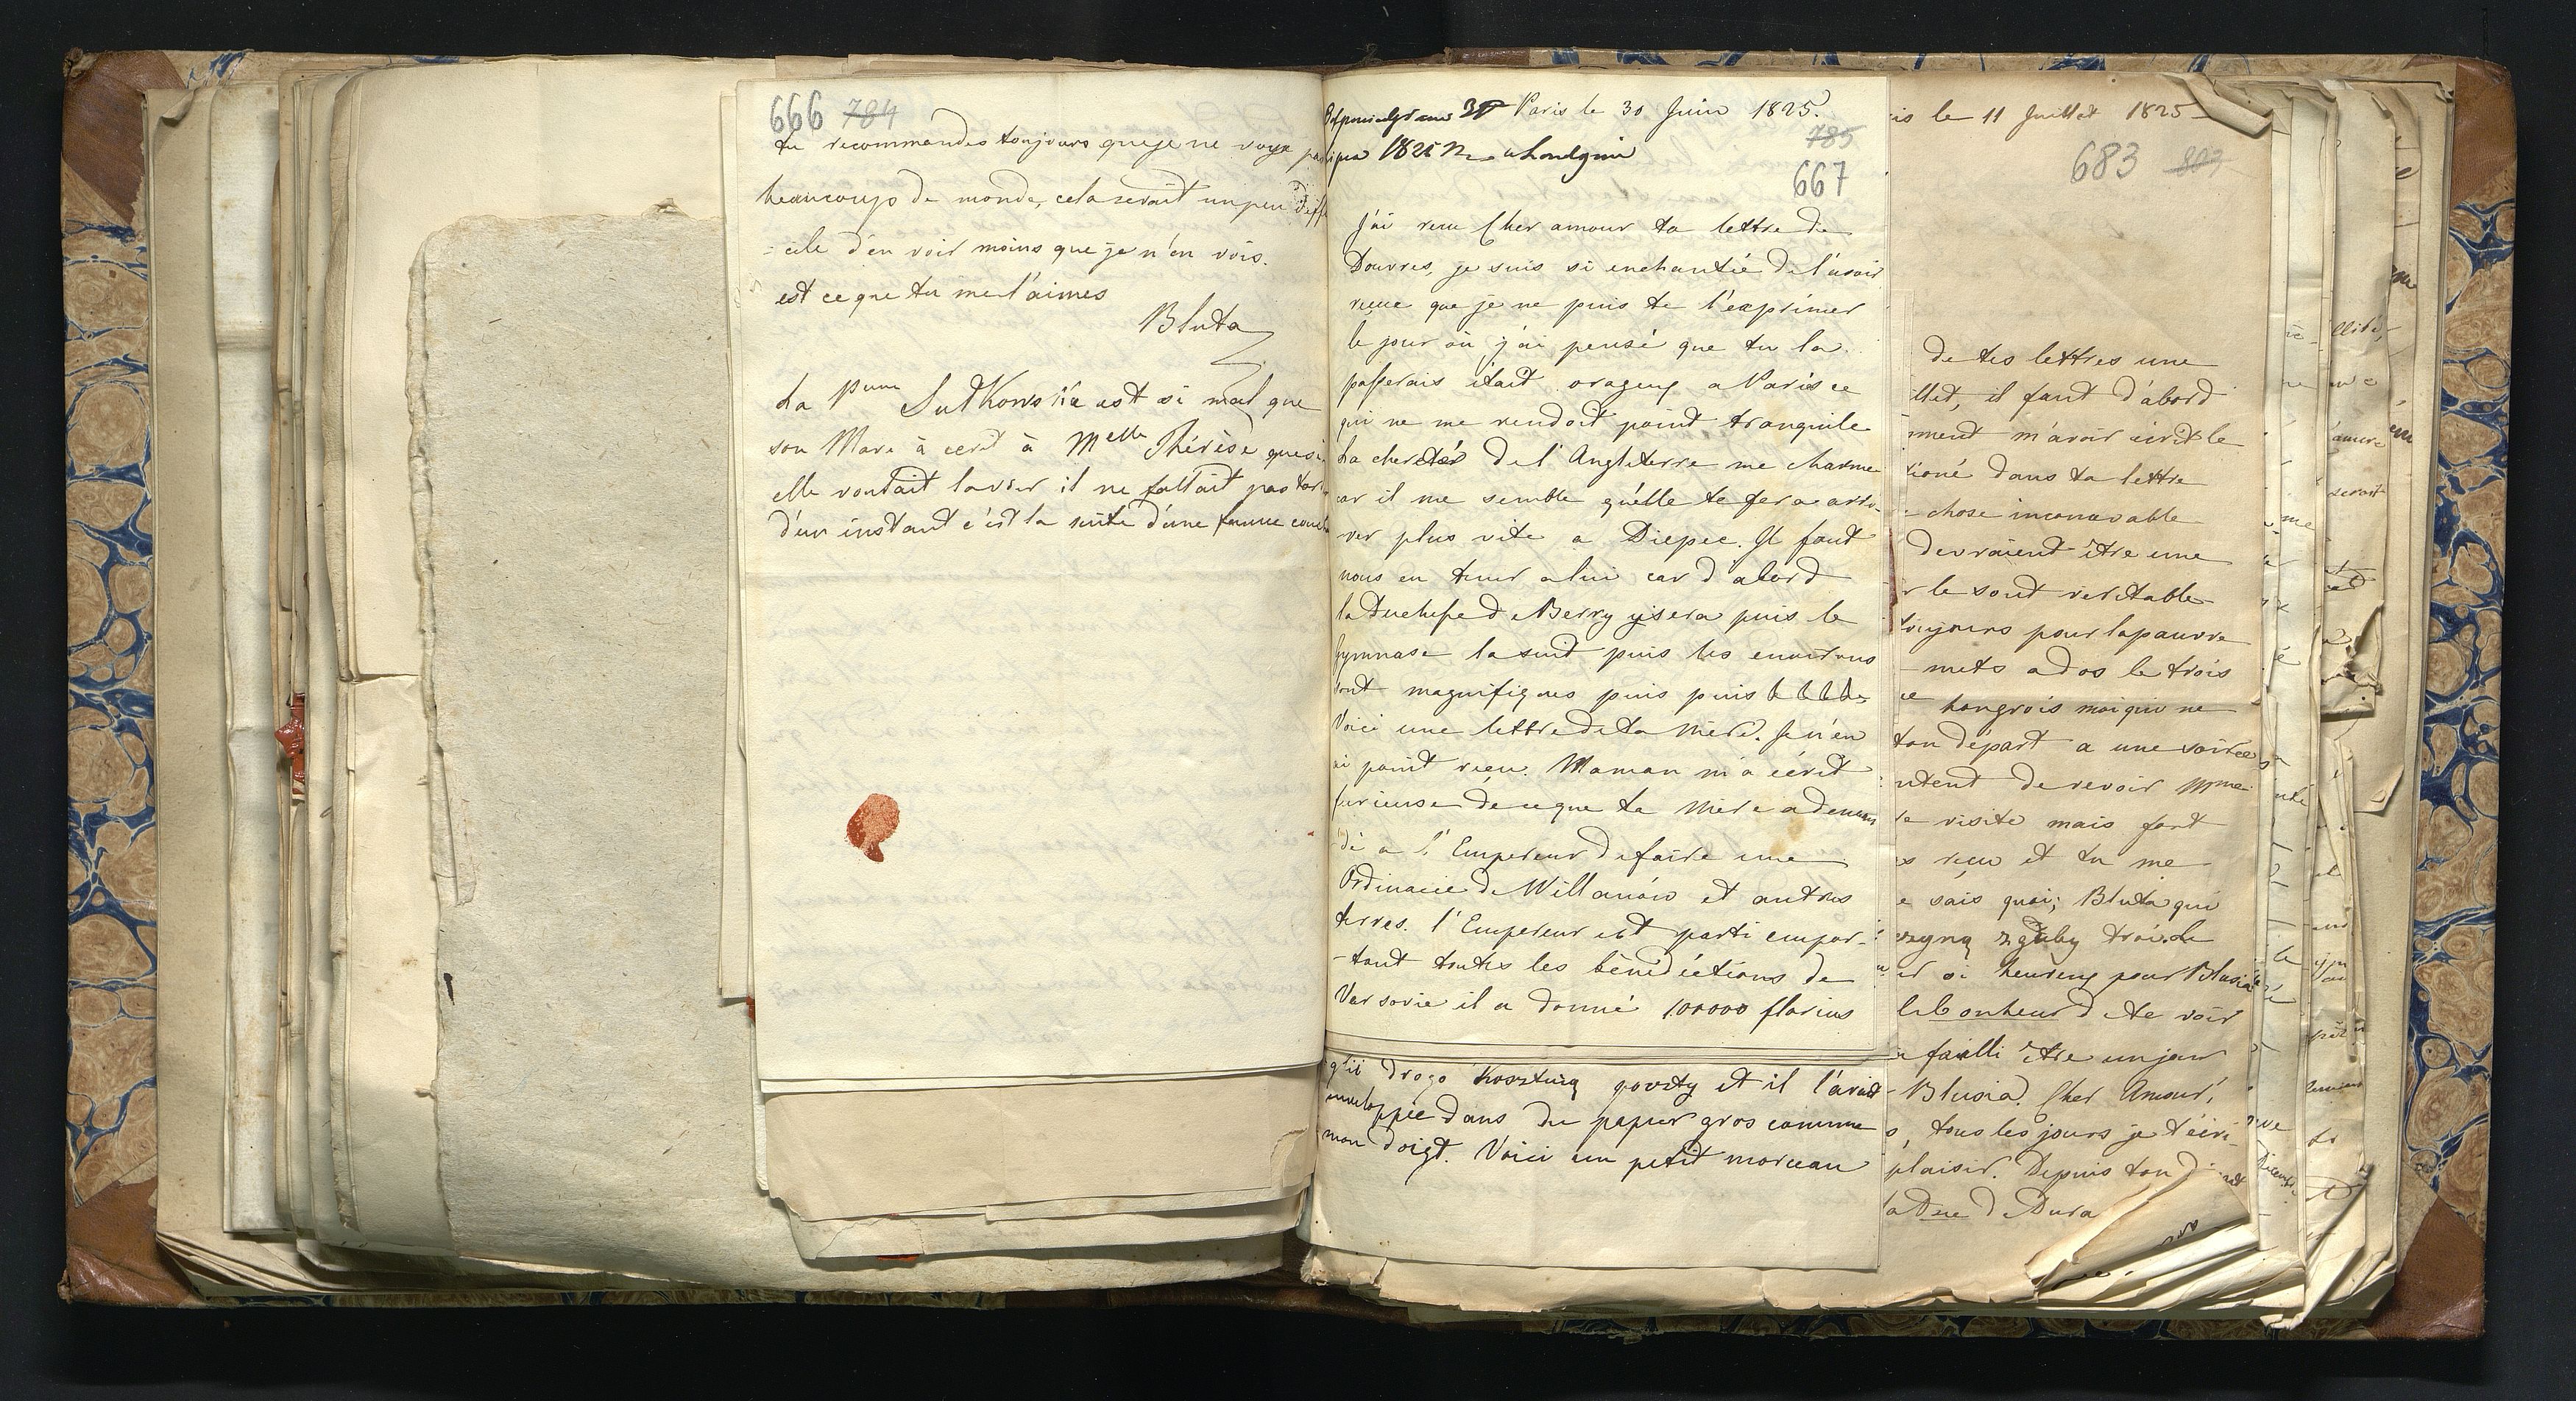 666 784
tu recommandes toujours que je ne voye pas
beaucoup de monde, cela serait un peu diffi
= cile d'en voir moins que je n'en vois.
est ce que tu me l'aimes
Bluta
La Pcesse Sutkowska est si mal que
son Mari à ecrit à Melle Thérèse que si
elle voulait la voir il ne fallait pas tar
d'un instant c'est la suite d'une fausse couche
Paris le 30 Juin 1825.
785
1825
667
J'ai reçu Cher amour ta lettre de
Douvres, je suis si enchantée de l'avoir
reçue que je ne puis te l'exprimer
le jour où j'ai pensé que tu la
passerais était orageux a Paris ce
qui ne me rendoit point tranquile
La cherté de l'Angleterre me charme
car il me semble qu'elle te fera arri-
ver plus vite a Dieppe. Il faut
nous en tenir a lui car d'abord
la Duchesse de Berry y sera puis le
Gymnase la suit puis les environs
sont magnifiques puis puis
Voici une lettre de ta Mère. Je n'en
ai point reçu. Maman m'a écrit
furieuse de ce que ta Mère a deman
dé a l'Empereur de faire une
Ordinacie de Willanów et autres
terres. l'Empereur est parti empor-
-tant toutes les bénédictions de
Varsovie il a donné 100000 florins
drogo et il l'avait
enveloppée dans du papier gros comme
mon doigt. Voici un petit morceau
is le 11 Juillet 1825
683 803
de tes lettres une
illet, il faut d'abord
mment m'avoir écrit le
tioné dans ta lettre
chose inconcevable
devraient être une
r le sont veritable
toujours pour la pauvre
mets a dos le trois
ce hongrois moi qui ne
ton départ a une soirée
ntent de revoir Mme
de visite mais fort
s reçu et tu me
e sais quoi; Bluta qui
si heureux pour Blusia
le bonheur de te voir
a failli être un jour
Blusia. Cher Amour,
s, tous les jours je t'écri-
plaisir. Depuis ton